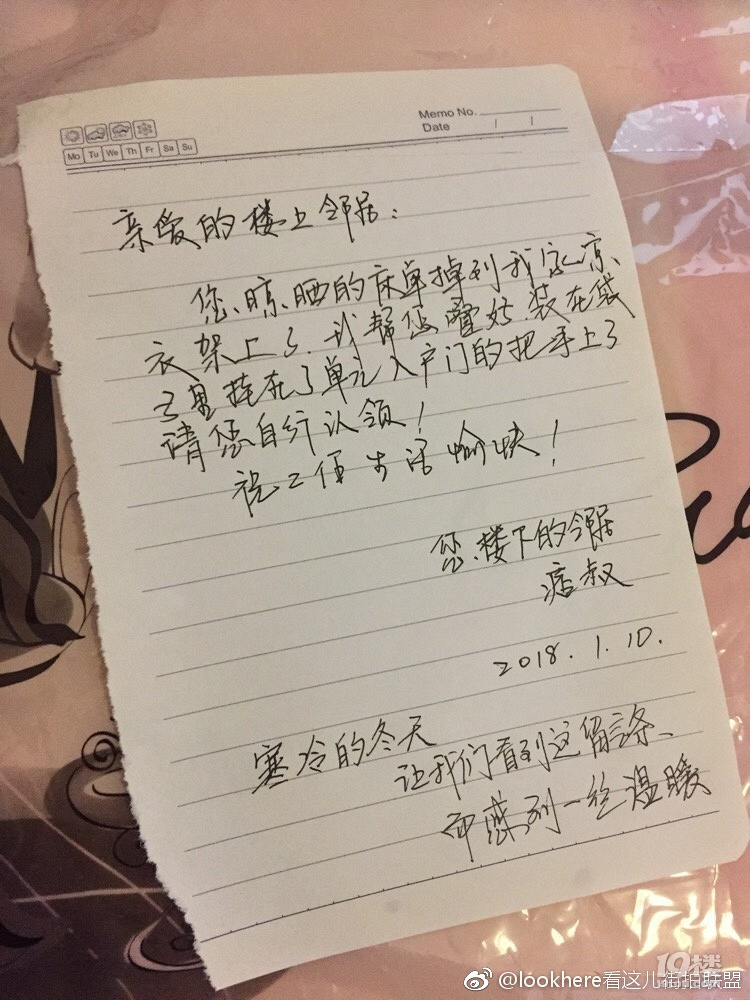 Memo No.
Date / /
Mo Tu We Th Fr Sa Su
亲爱的楼上邻居：
您晾晒的床单掉到我家凉
衣架上了.我帮您叠好.装在袋
子里挂在了单元入户门的把手上了
请您自行认领！
祝工作生活愉快！
您楼下的邻居
叔
2018.1.10.
寒冷的冬天
让我们看到这留言条、
却感到一丝温暖
19楼
@lookhere看这儿街拍联盟